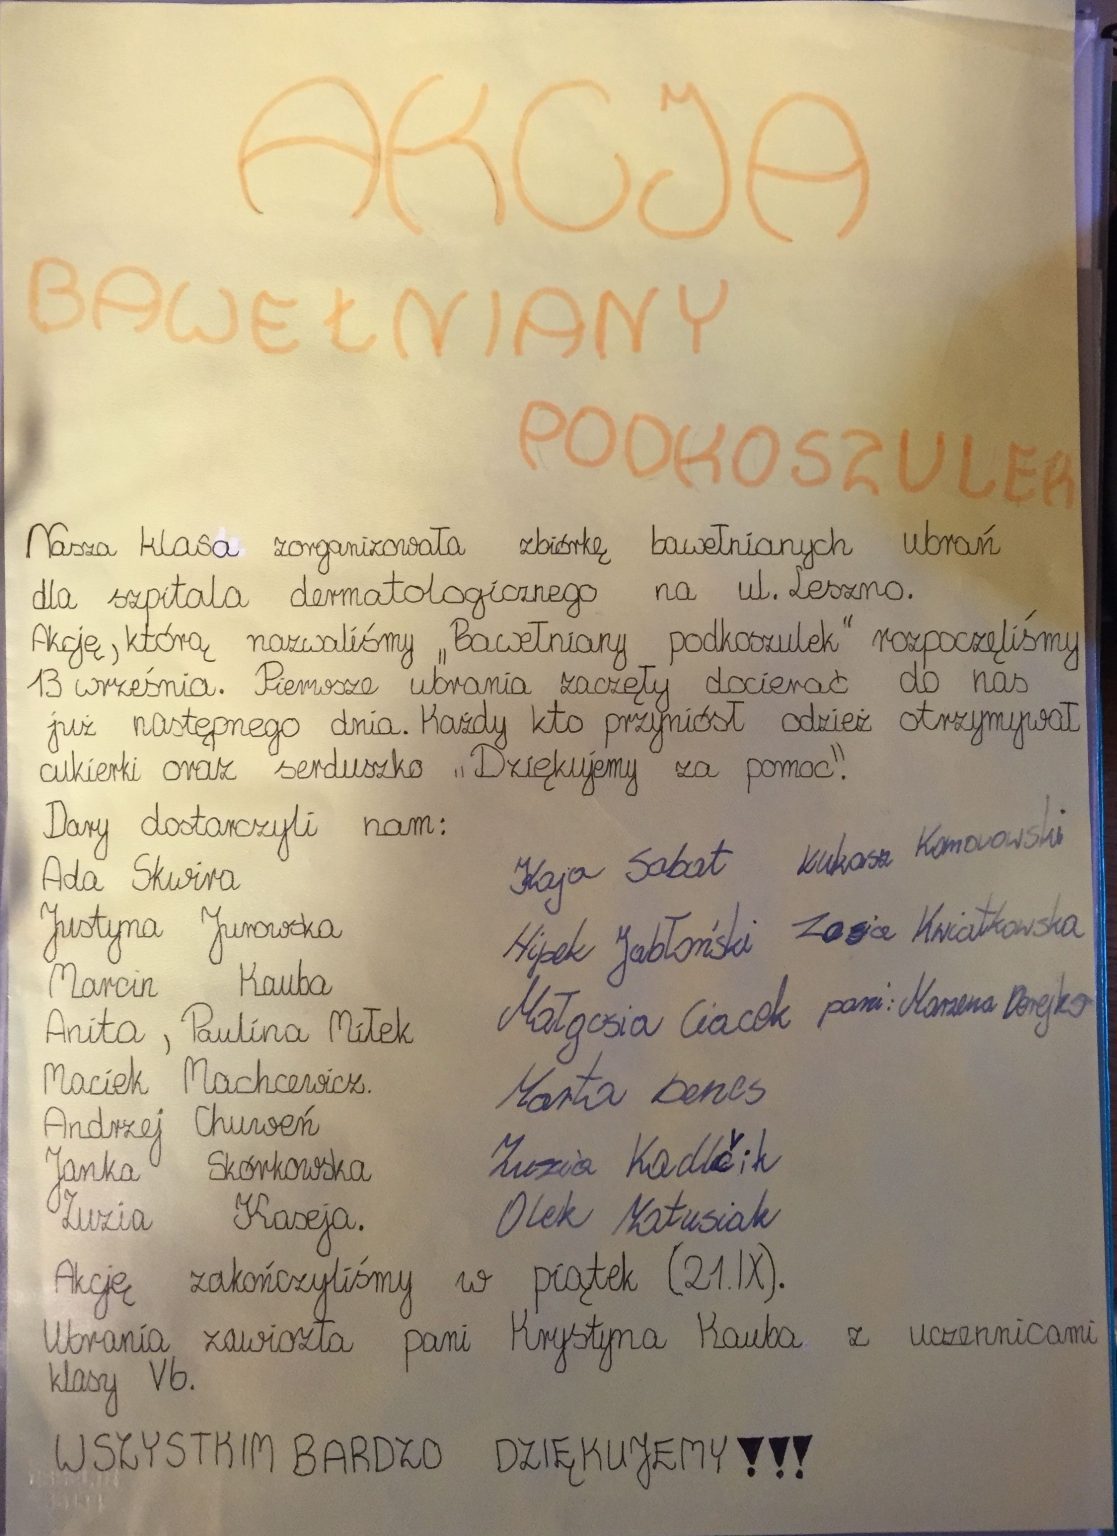 AKCJA
BAWEŁNIANY
PODKOSZULEK
Nasza klasa zorganizowała zbiórkę bawełnianych ubrań
dla szpitala dermatologicznego na ul. Leszno.
Akcję, którą nazwaliśmy „Bawełniany podkoszulek" rozpoczęliśmy
13 września. Pierwsze ubrania zaczęły docierać do nas
już następnego dnia. Każdy kto przyniósł odzież otrzymywał
cukierki oraz serduszko „Dziękujemy za pomoc".
Dary dostarczyli nam:
Ada Skwira
Justyna Jurowska
Marcin Kauba
Anita, Paulina Miłek
Maciek Machcewicz.
Andrzej Chuweń
Janka Skórkowska
Zuzia Kaseja.
Kaja Sabat
Hipek Jabłoński
Małgosia Ciacek
Marta Dencs
Zuzia Kadlčik
Olek Matusiak
Łukasz Komorowski
Zosia Kwiatkowska
pani: Marzena Derejko
Akcję zakończyliśmy w piątek (21.IX).
Ubrania zawiozła pani Krystyna Kauba z uczennicami
klasy Vb.
WSZYSTKIM BARDZO DZIĘKUJEMY!!!